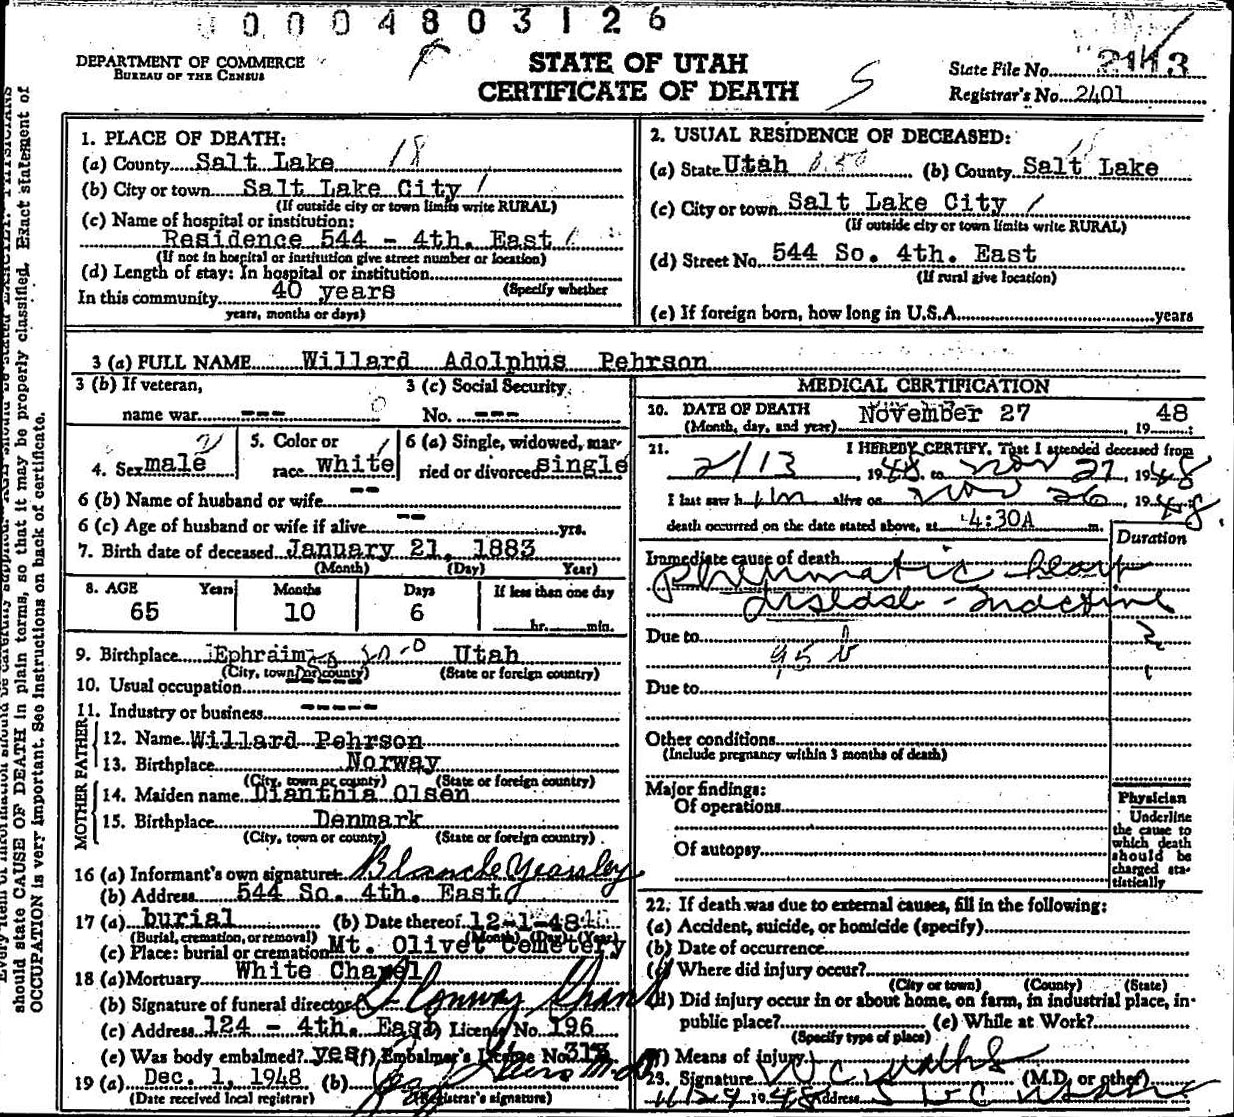 0 0 0 0 4 8 0 3 1 2 6
DEPARTMENT OF COMMERCE
BUREAU OF THE CENSUS
STATE OF UTAH
CERTIFICATE OF DEATH
State File No.
Registrar's No. 2401
1. PLACE OF DEATH:
(a) County Salt Lake 18
(b) City or town Salt Lake City 1
(If outside city or town limits write RURAL)
(c) Name of hospital or institution:
Residence 544 - 4th. East
(If not in hospital or institution give street number or location)
(d) Length of stay: In hospital or institution
(Specify whether
In this community 40 years
years, months or days)
2. USUAL RESIDENCE OF DECEASED:
(a) State Utah (b) County Salt Lake
(c) City or town Salt Lake City 1
(If outside city or town limits write RURAL)
(d) Street No. 544 So. 4th. East
(If rural give location)
(e) If foreign born, how long in U.S.A. years
3 (a) FULL NAME Willard Adolphus Pehrson
3 (b) If veteran,
name war ---
3 (c) Social Security
No. ---
4. Sex male
5. Color or
race white
6 (a) Single, widowed, mar-
ried or divorced single
6 (b) Name of husband or wife --
6 (c) Age of husband or wife if alive -- yrs.
7. Birth date of deceased January 21, 1883
(Month) (Day) Year)
8. AGE Years Months Days If less than one day
65 10 6 hr. min.
9. Birthplace Ephraim Utah
(City, town or county) (State or foreign country)
10. Usual occupation -----
11. Industry or business -----
FATHER
12. Name Willard Pehrson
13. Birthplace Norway
(City, town or county) (State or foreign country)
MOTHER
14. Maiden name Dianthia Olsen
15. Birthplace Denmark
(City, town or county) (State or foreign country)
16 (a) Informant's own signature Blanche Yearsley
(b) Address 544 So. 4th. East
17 (a) burial (b) Date thereof 12-1-48
(Burial, cremation, or removal) (Month) (Day) (Year)
(c) Place: burial or cremation Mt. Olivet Cemetery
18 (a) Mortuary White Chapel
(b) Signature of funeral director
(c) Address 124 - 4th. East (d) License No. 196
(e) Was body embalmed? yes (f) Embalmer's License No. 313
19 (a) Dec. 1, 1948 (b)
(Date received local registrar) (Registrar's signature)
MEDICAL CERTIFICATION
20. DATE OF DEATH November 27 , 1948;
(Month, day, and year)
21. I HEREBY CERTIFY, That I attended deceased from
2/13, 1948, to Nov 27, 1948
I last saw him alive on Nov 26, 1948,
death occurred on the date stated above, at 4:30A m.
Duration
Immediate cause of death
Rheumatic heart
disease - inactive
Due to
95 b
Due to
Other conditions
(Include pregnancy within 3 months of death)
Major findings:
Of operations
Of autopsy
Physician
Underline
the cause to
which death
should be
charged sta-
tistically
22. If death was due to external causes, fill in the following:
(a) Accident, suicide, or homicide (specify)
(b) Date of occurrence
(c) Where did injury occur?
(City or town) (County) (State)
(d) Did injury occur in or about home, on farm, in industrial place, in
public place? (e) While at Work?
(Specify type of place)
(f) Means of injury
23. Signature (M.D. or other)
1948 Address
should state CAUSE OF DEATH in plain terms, so that it may be properly classified. Exact statement of
OCCUPATION is very important. See instructions on back of certificate.